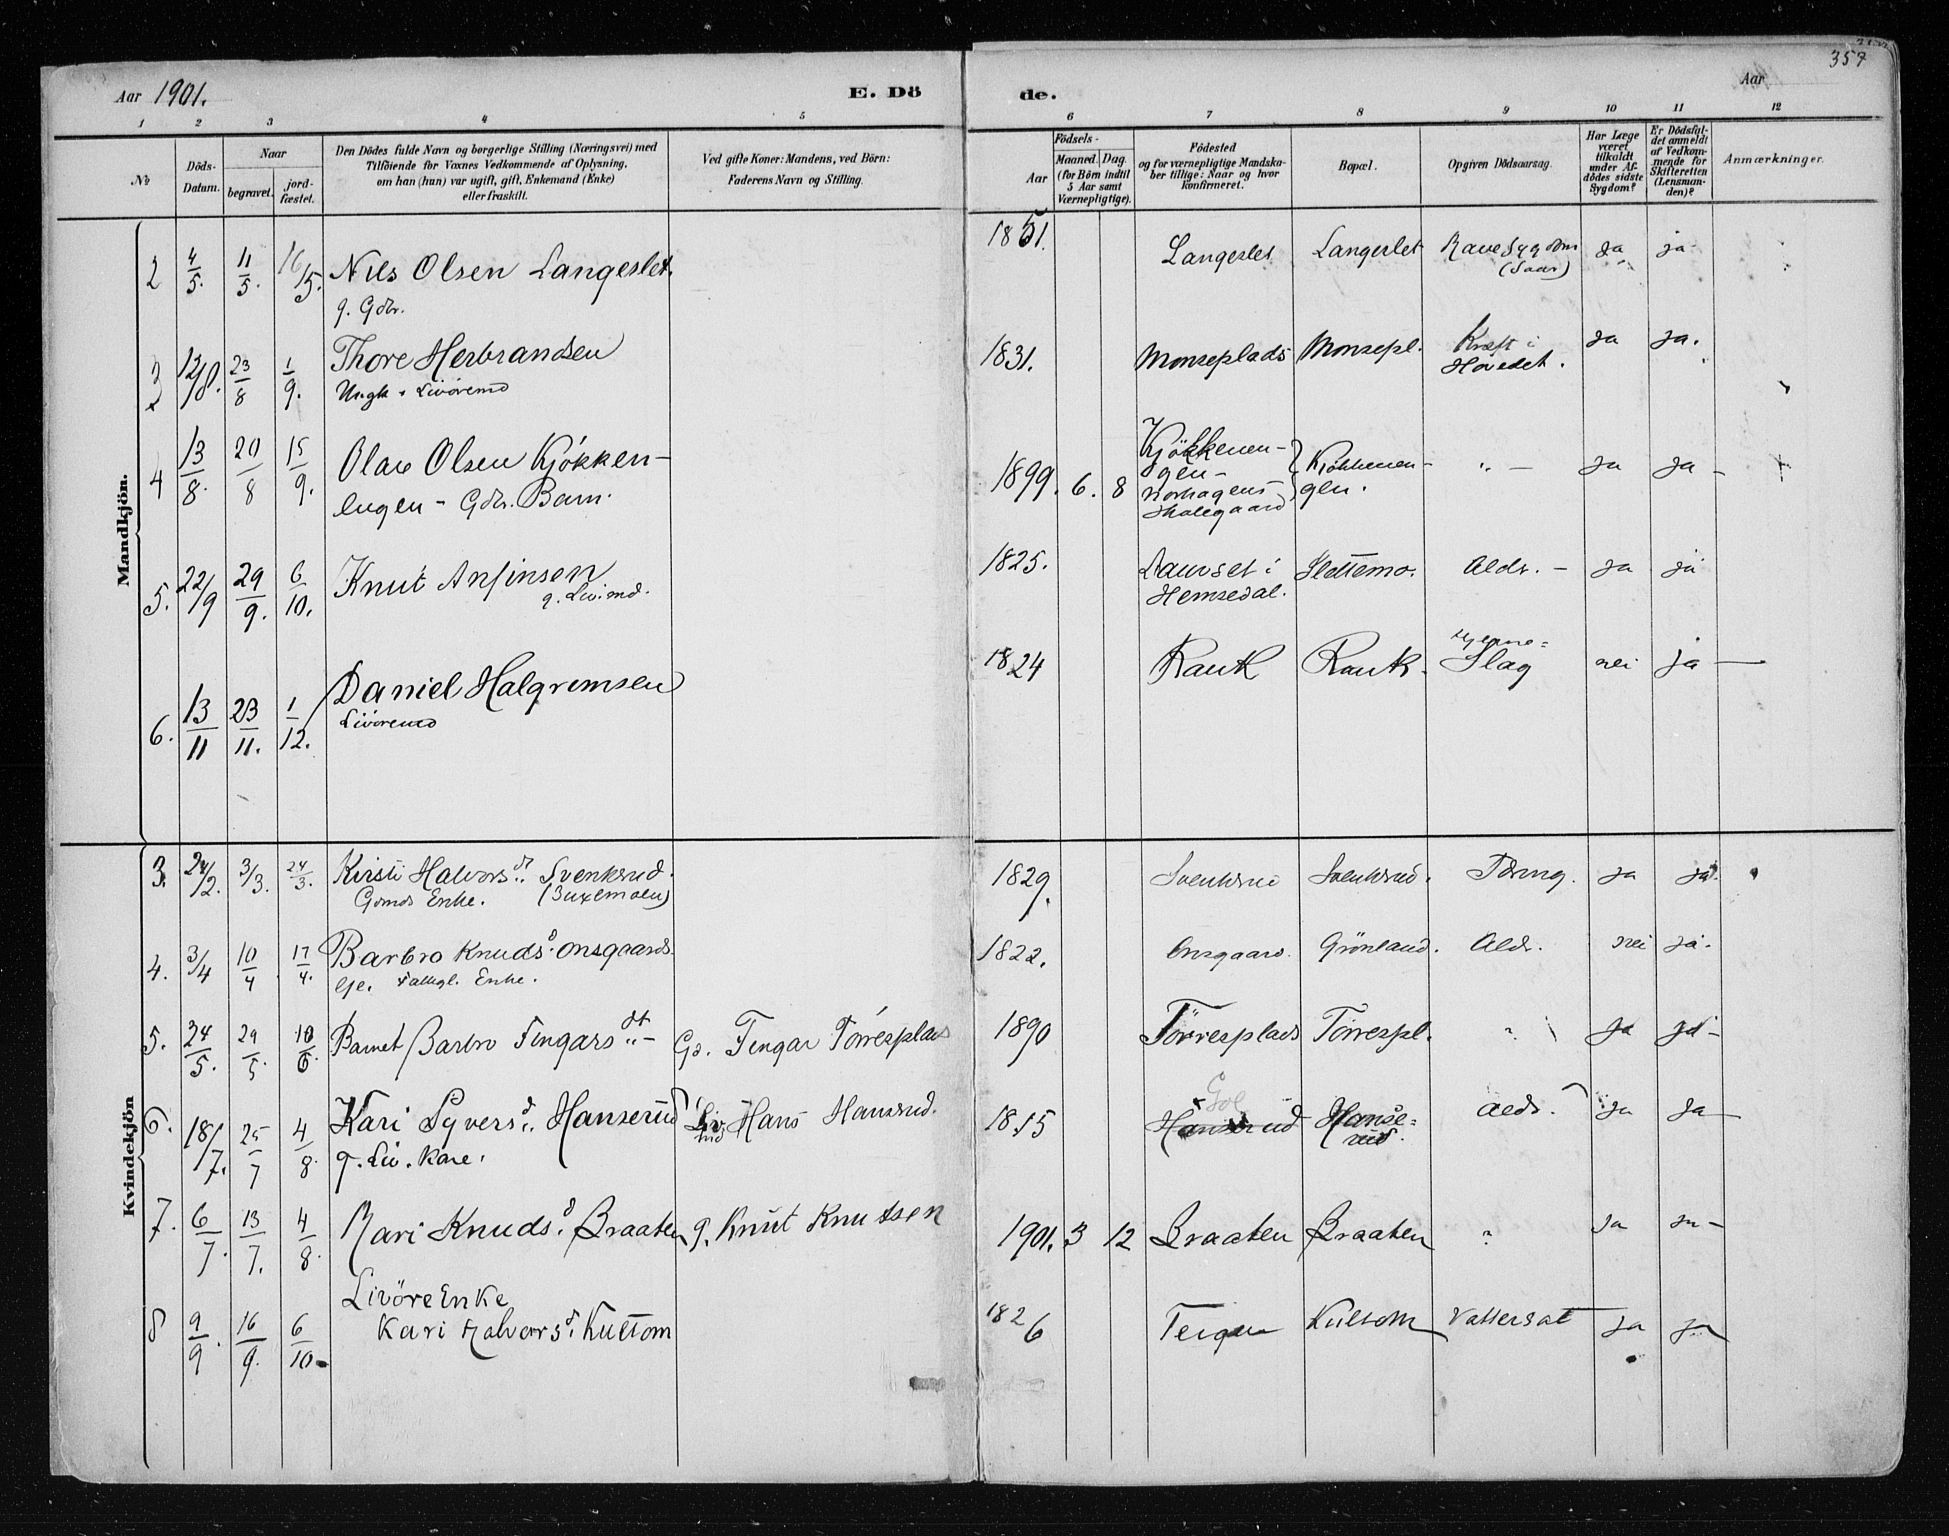 Aar 1901.
E. Dö
de.
Aar
357
1
2
3
4
5
6
7
8
9
10
11
12
No
Döds-
Datum.
Naar
begravet.
jord-
fæstet.
Den Dödes fulde Navn og borgerlige Stilling (Næringsvei) med
Tilföiende for Voxnes Vedkommende af Oplysning,
om han (hun) var ugift, gift, Enkemand (Enke)
eller fraskilt.
Ved gifte Koner: Mandens, ved Börn:
Faderens Navn og Stilling.
Födsels-
Aar
Maaned.
Dag
(for Börn indtil
5 Aar samt
Værnepligtige).
Födested
og for værnepligtige Mandska-
ber tillige: Naar og hvor
konfirmeret.
Bopæl.
Opgiven Dödsaarsag.
Har Læge
været
tilkaldt
under Af-
dödes sidste
Sygdom?
Er Dödsfal-
det anmeldt
af Vedkom-
mende for
Skifteretten
(Lensman-
den)?
Anmærkninger.
Mandkjön.
2 4/5. 11/5. 16/5. Nils Olsen Langeslet. 1851. Langeslet Langeslet ja ja
g. Gdbr.
3 12/8. 23/8 1/9. Thore Herbrandsen 1831. Monseplads Monsepl. Kræft i Hovedet. ja ja.
Ungk. Livöremd
4 13/8. 20/8 15/9. Olav Olsen Kjökken-
engen - Gdbr. Barn. 1899. 6. 8 Kjökkenen-
gen -
Skolegaard
Kjökkenen-
gen. " - ja ja -
5. 22/9 29/9. 6/10. Knut Anfinsen 1825. i Hemsedal. Slettemo. Aldr. - ja ja
g. Liv.md.
6. 13/11 23/11. 1/12. Daniel Halgrimsen 1824 Rauk Rauk. Hjerne=
Slag nei ja -
Livöremd
Kvindekjön
3. 24/2. 3/3. 24/3. Kirsti Halvorsd. Svenksrud. 1829. Svenksrud Svenksrud. Tæring. ja ja.
Gdmds Enke.
4. 3/4 10/4 17/4. Barbro Knudsd. Onsgaards 1822. Onsgaard. Grönland. Aldr. nei ja.
Enke.
5. 24/5. 29/5. 10/6. Barnet Barbro Fingarsdt - Gd. Fingar Törresplads 1890 Törresplads Törrespl. " ja ja -
6. 18/7. 25/7 4/8. Kari Syversd. Hanserud Liv. Hans Hansrud. 1815 Gol
Hanserud Hanse=
rud. Aldr. ja ja -
g. Liv. Kone.
7. 6/7. 13/7. 4/8. Mari Knudsd. Braaten g. Knut Knutsen 1901. 3 12 Braaten Braaten " ja ja -
8 9/9. 16/9. 6/10. Livöre Enke
Kari Halvorsd. Kultom 1826 Teigen Kultom Vattersot ja ja